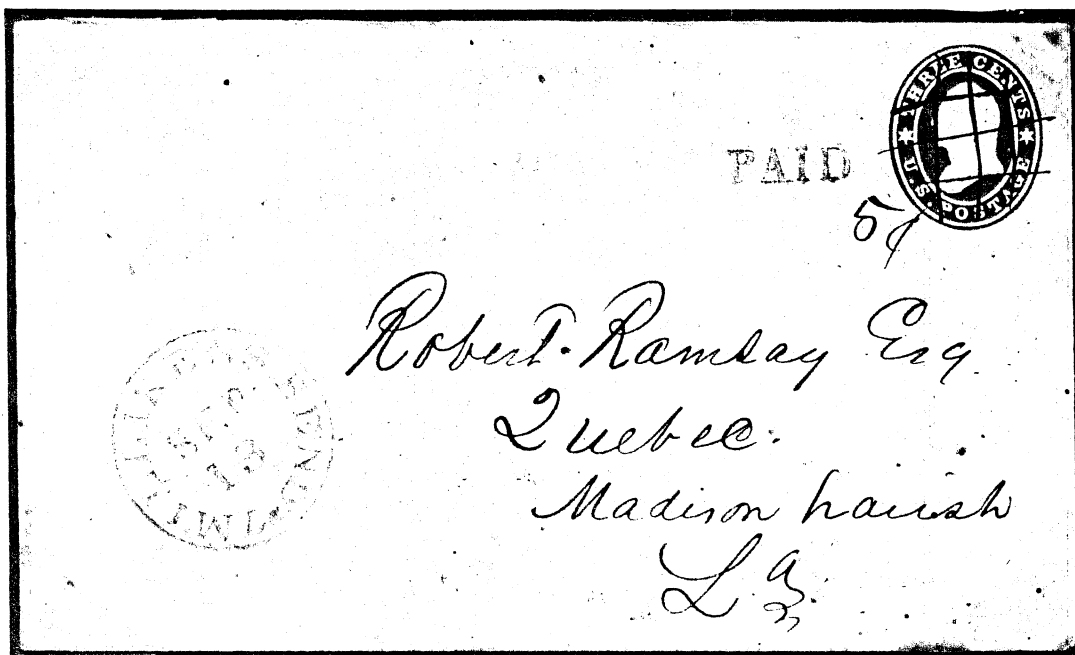 THREE CENTS
U.S. POSTAGE
PAID
5¢
Robert Ramsay Esq
Quebec.
Madison Parish
La
MILLIKENS BEND
SEP
13